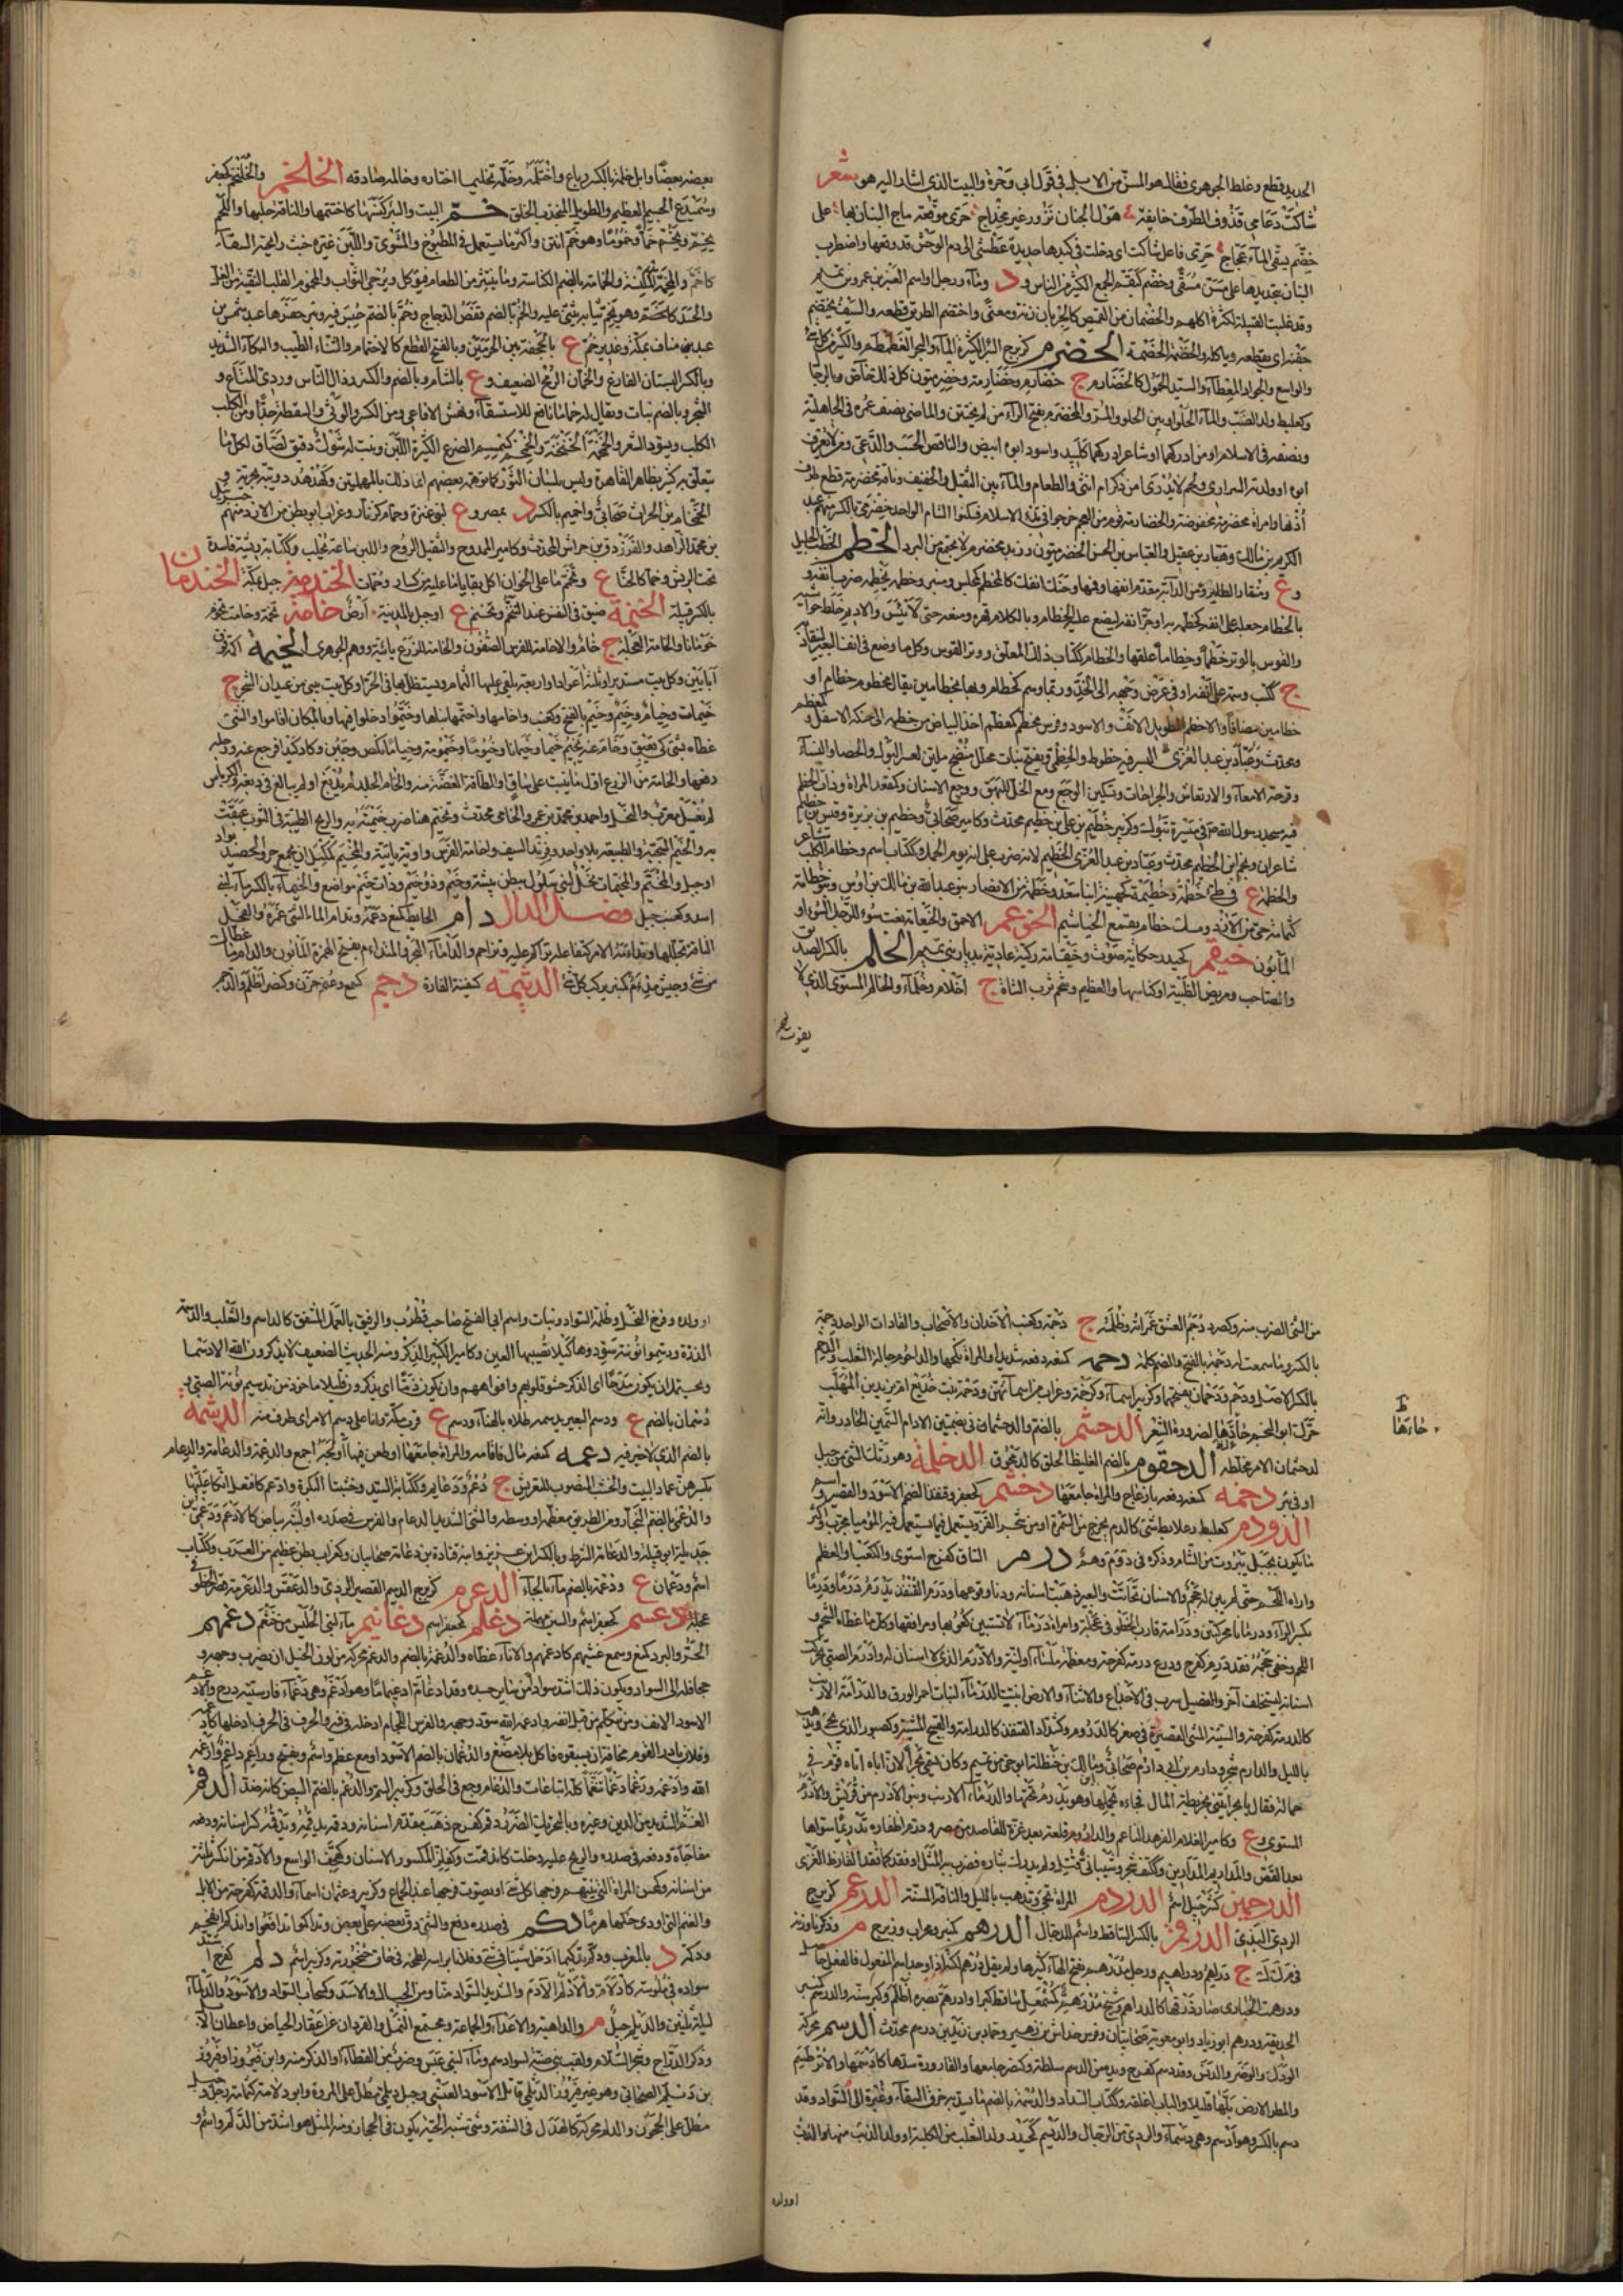 الحديد قطع وغلط الجوهري فقال هو المسن من الابل في قول ابي وجزة والبيت الذي اشار اليه هو شعر
شاكت دغامي قذوف الطرف خايفة هول الجنان نزور غير مخداج حرى موقعة ماج البنان بها على
خضم يسقى الماء عجاج حرى فاعل شاكت اي دخلت في كبدها حديدة عطشى الى دم الوحش قد وقعها واضطرب
البنان بتحديدها على مسن مسقى وخضم كبقم الجمع الكثير من الناس ود وماء ورجل او اسم العنبر بن عمرو بن تميم
وقد غلبت القبيلة لكثرة اكلهم والخضمان من القميص كالجربان زنة ومعنى واختضم الطريق قطعه والسيف يختضم
جفنه اي يقطعه وياكله والخضمة الخضيمة الخضرم كزبرج البئر الكثيرة الماء والبحر الغطمطم والكثير من كل شيء
والواسع والجواد المعطاء والسيد الحمول كالخضارم ج خضارم وخضارمة وخضرمون كل ذلك خاص بالرجال
وكعلبط ولد الضب والماء الحلو او بين الحلو والمر والمخضرم بفتح الراء من لم يختتن والماضي نصف عمره في الجاهلية
ونصفه في الاسلام او من ادركهما او شاعر ادركهما كلبيد واسود ابوه ابيض والناقص الحسب والدعي ومن لا يعرف
ابوه او ولدته السراري ولحم لا يدرى امن ذكر ام انثى والطعام والماء بين الثقيل والخفيف وناقة مخضرمة قطع طرف
اذنها وامراة مخضرمة مخفوضة والخضارمة قوم من العجم خرجوا في بدء الاسلام فسكنوا الشام الواحد خضرمي بالكسر منهم عبد
الكريم بن مالك وهبار بن عقيل والعباس بن الحسن الخضرميون وزبد مخضرم لا يجتمع من البرد الخطم الخطب الجليل
وع ومنقار الطائر ومن الدابة مقدم انفها وفمها ومنك انفك كالمخطم كمجلس ومنبر وخطمه يخطمه ضرب انفه و
بالخطام جعله على انفه كخطمه به او جر انفه ليضع عليه الخطام وبالكلام قهره ومنعه حتى لا ينبس والاديم خاط حواشيه
والقوس بالوتر خطما وخطاما علقها والخطام ككتاب ذلك المعلق ووتر القوس وكل ما وضع في انف البعير ليقتاد به
ج ككتب وسمة على انفه او في عرض وجهه الى الخد وربما وسم كخطام وبها بخطامين يقال مخطوم خطام او
خطامين مضافا والاخطم الطويل الانف والاسود وفرس مخطم كمعظم اخذ البياض من خطمه الى حنكه الاسفل و
ومحدث وعباد بن عبد العزى البسر فيه خطوط والخطمي ويفتح نبات محلل منضج ملين لعسر البول والحصا والنساء
وقرحة الامعاء والارتعاش والجراحات وتسكين الوجع ومع الخل للبهق ووجع الاسنان وكقعود المراة وذات الخطم
فيه مسجد رسول الله في مسيره تبوك وكزبير خطيم بن علي بن خطيم محدث وكامير صحابي وخطيم بن نويرة وقيس بن خطيم
شاعران وابو الخطيم محدث وعباد بن عبد العزى الخطيم لانه ضرب على انفه يوم الجمل وككتاب اسم وخطام الكلب
والخطم ع في طي خطمة وخطيمة كجهينة ابنا سعد وخطمة من الانصار بنو عبد الله بن مالك بن اوس وبنو خطامة
كثمامة حي من الازد ومسك خطام يفعم الخياشيم الخوعم الاحمق والخيعامة نعت سوء للرجل السوء او
المابون خيقم كحيدر حكاية صوت وخيقمانة ركية عادية بديار بني تميم الخلم بالكسر الصديق
والصاحب ومربض الظبية او كناسها والعظيم وشحم ثرب الشاة ج اخلام وخلماء والخالم المستوي الذي لا
يفوت
بعضه بعضا وابل خلمة بالكسر رتاع واختلمه وخلمه تخليما اختاره وخالمه صادقه الخلخم والخلخم كجعفر
وسميدع الجسيم العظيم والطويل المنجذب الخلق خم البيت والبئر كنسها كاختمها والناقة حلبها واللحم
يخم ويخم خما وخموما وهو خم انتن واكثر ما يستعمل في المطبوخ والمشوي واللبن غيره خبث رايحة السقاء
كاخم والمخمة المكنسة والخمامة بالضم الكناسة وما ينتثر من الطعام فيؤكل ويرجى الثواب والمخموم القلب النقي من الغل
والحسد كالخمة وهو يخم ثيابه يثني عليه والخم بالضم قفص الدجاج وخم بالضم حبس فيه وبئر حفرها عبد شمس بن
عبد مناف بمكة وغدير خم ع بالجحفة بين الحرمين وبالفتح القطع كالاختمام والثناء الطيب والبكاء الشديد
وبالكسر البستان الفارغ والخمان الرمح الضعيف وع بالشام وبالضم والكسر رذال الناس وردي المتاع و
الشجر وبالضم نبات ويقال له خاما نافع للاستسقاء ونهش الافاعي ومن الكسر والوثي والسقطة جدا ومن الكلب
الكلب ويسود الشعر والخمخمة الخنخنة والخمخم كسمسم الضرع الكثيرة اللبن ونبت له شوك دقيق لصاق بكل ما
يتعلق به كثير بظاهر القاهرة وليس بلسان الثور كما توهمه بعضهم انما ذلك بالمهملتين وكهدهد دويبة بحرية و
الخمخام بن الحرث صحابي واخميم بالكسر د بمصر وع لبني عنزة وخما كزنار وغراب ابو بطن من الازد منهم
بن محمد الزاهد والفرزدق بن جراش المحدث وكامير الممدوح والثقيل الروح واللبن ساعة يحلب وككتابة ريشة فاسدة
تحت الريش وخما كالحنا ع وتخمم ما على الخوان اكل بقايا ما عليه من كسار وحتات الخندمة جبل بمكة الخندمان
بالكسر قبيلة الخنمة ضيق في النفس عند التخنم وتخنم ع او جبل بالمدينة ارض خامة تخمة وخامت تخوم
خومانا والخامة الفجلة ج خام والاخامة للفرس الصفون والخامة للزرع يائية ووهم الجوهري الخيمة اكمة فوق
ابانين وكل بيت مستدير او ثلثة اعواد او اربعة يلقى عليها الثمام ويستظل بها في الحر او كل بيت يبنى من عيدان الشجر ج
خيمات وخيام وخيم وخيم بالفتح وكعنب واخامها واخيمها بناها وخيموا دخلوا فيها وبالمكان اقاموا والشيء
غطاه بشيء كي يعبق وخام عنه يخيم خيما وخيمانا وخيوما وخيومة وخياما نكص وجبن وكاد كيدا فرجع عنه ورجله
رفعها والخامة من الزرع اول ما ينبت على ساق والطاقة الغضة منه والخام الجلد لم يدبغ او لم يبالغ في دبغه والكرباس
لم يغسل معرب والفجل واحمد بن محمد بن عمر والخامي محدث وتخيم هنا ضرب خيمته به والريح الطيبة في الثوب عبقت
به والخيم السجية والطبيعة بلا واحد وفرند السيف واخامة الفرس واوية يائية والمخيم كمكيل ان يجمع جرز الحصيد وواد
او جبل والمختم والمخيمات نخل لبني سلول ببطن بيشة وخيم وذو خيم وذات خيم مواضع والخيماء بالكسر ماء لبني
اسد وكعنب جبل فصل الدال دام الحايط كمنع دعمه وتدام الماء الشيء غمره والفحل
الناقة تجللها وتداءمه الامر كتفاعله تراكم عليه وتزاحم والداماء البحر والمتداءم بفتح الهمزة المابون والدام ما غطاك
من شيء وجيش مدام كمنبر يركب كل شيء الدثيمة كسفينة الفارة دجم كسمع وعني حزن وكنصر اظلم والدجم
من الشيء الضرب منه وكصرد دجم العشق غمراته وظلمه ج دجمة وكعنب الاخدان والاصحاب والعادات الواحد دجمة
بالكسر وما سمعت له دجمة بالفتح والضم كلمة دحمه كمنعه دفعه شديدا والمراة نكحها والداحوم حبالة الثعلب والدحم
بالكسر الاصل ودحم ودحمان بفتحهما وكزبير اسماء وكرحمة وغراب من اسمائهن ودحمة بنت خديج ام يزيد بن المهلب
حرك ابو النجم حاءها لضرورة الشعر الدحثم بالضم والدحثمان بضمتين الادام السمين الحادر وانه
لدحثمان الامر مخلطه الدحقوم بالضم الغليظ الخلق كالدمحوق الدحلمة دهورتك الشيء من جبل
او في بئر دخمه كمنعه دفعه بازعاج والمراة جامعها دخشم كجعفر وقنفذ الضخم الاسود والقصير و اسم
الدودم كعلبط وعلابط شيء كالدم يخرج من السمرة او من شجر الغز يستعمل فيما يستعمل فيه الموميا مجرب واكثر
ما يكون بجبل بيروت من الشام وذكره في د وم وهم درم الساق كفرح استوى والكعب او العظم
واراه اللحم حتى لم يبن له حجم والاسنان تحاتت والبعير ذهبت اسنانه ودنا وقوعها ودرم القنفذ يدرم درما ودرما
بكسر الراء ودرمانا محركتين ودرامة قارب الخطو في عجلة وامراة درماء لا تستبين كعوبها ومرافقها وكل ما غطاه الشحم و
اللحم وخفي حجمه فقد درم كفرح ودرع درمة كفرحة ومعظمة ملساء او لينة والادرم الذي لا اسنان له وادرم الصبي تحركت
اسنانه ليستخلف اخر والفصيل شرب في الاجذاع والاثناء والارض انبتت الدرماء لنبات احمر الورق والدرامة الارنب
كالدرمة كفرحة والسيئة المشي القصيرة في صغر كالدروم وكشداد القنفذ كالدرامة والقبيح المشية وكصبور الذي يجيء ويذهب
بالليل والدارم شجر ودارم بن ابي دارم صحابي وبن مالك بن حنظلة ابو حي من تميم وكان يسمى بحرا لان اباه اتاه قوم في
حمالة فقال يا بحر ايتني بخريطة المال فجاءه يحملها وهو يدرم تحتها والدرماء الارنب وبنو الادرم من قريش والادرم
المستوي وع وكامير الغلام الفرهد الناعم والداروم قلعة بعد غزة للقاصد مصر ودرم اظفاره تدريما سواها
بعد القص والمداريم المدارين وككتف شجر وشيباني قتيل ولم يدرك بثاره فضرب به المثل او فقد كما فقد القارظ العنزي
الدرحمين كشرحبيل اسم الدردم المراة تجيء وتذهب بالليل والناقة المسنة الدرعم كزبرج
الرديء البذيء الدرقم بالكسر الساقط واسم للدجال الدرهم كمنبر ومحراب وزبرج م وذكر ما وزنه
في م ك ك ج دراهم ودراهيم ورجل مدرهم بفتح الهاء كثيرها ولم يقل درهم لكنه اذا وجد اسم المفعول فالفعل حاصل
ودرهمت الخبازى صار ورقها كالدراهم وشيخ مدرهم كمشمعل ساقط كبرا وادرهم بصره اظلم وكبر سنه والدرهم كمنبر
الحديقة ودرهم ابو زياد وابو معوية صحابيان وفرس خداش بن زهير وحماد بن زيد بن درهم محدث الدسم محركة
الودك والوضر والدنس وقد دسم كفرح ويد من الدسم سلطة وكنصر جامعها والقارورة سدها كادسمها والاثر طسم
والمطر الارض بلها قليلا والباب اغلقه وككتاب السداد والدسمة بالضم ما يشد به خرق السقاء وغبرة الى السواد وقد
دسم بالكسر وهو ادسم وهي دسماء والرديء من الرجال والديسم كحيدر ولد الثعلب من الكلبة او ولد الذئب منها والدب
او ولده
حاءتها
او ولده وفرخ النحل وظلمة السواد ونبات واسم ابي الفتح صاحب قطرب والرفيق بالعمل المشفق كالداسم والثعلب والديسمة
الذرة ودسموا نونته سودوها كيلا تصيبها العين وكامير الكثير الذكر ومنه الحديث الضعيف لا يذكرون الله الا دسما
ويحتمل ان يكون مدحا اي الذكر حشو قلوبهم وافواههم وان يكون ذما اي يذكرون قليلا ماخوذ من تدسيم نونة الصبي
دسمان بالضم ع ودسم البعير يدسمه طلاه بالهناء ودسم ع قرب مكة وانا على دسم الامر اي طرف منه الدشمة
بالضم الذي لا خير فيه دعمه كمنعه مال فاقامه والمراة جامعها او طعن فيها او لجه اجمع والدعمة والدعامة والدعام
بكسرهن عماد البيت والخشب المنصوب للتعريش ج دعم ودعايم وككتاب السيد وخشبتا البكرة وادعم كافتعل اتكا عليها
والدعم بالضم النجار ومن الطريق معظمه او وسطه والشيء الشديد الدعام والفرس في صدره او لبته بياض كالادعم ودعمي بن
جديلة ابو قبيلة والدعامة الشرط وبالكسر ابن عزيز وابنه قتادة بن دعامة صحابيان وكغراب بطن عظيم من العرب وككتاب
اسم ودعمان ع ودعمة بالضم ماء بالجاء الدعرم كزبرج الدميم القصير الرديء والدعفس والدعرمة قصر الخطو
عجلة دعسم كجعفر اسم والسين مهملة دغلم كجعفر اسم دغانيم ماء لبني الحليس من خثعم دغمهم
الحر والبرد كمنع وسمع غشيهم كادغمهم والاناء غطاه والدغمة بالضم والدغم محركة من لون الخيل ان يضرب وجهه و
جحافله الى السواد ويكون ذلك اشد سوادا من ساير جسده وقد ادغام ادغيماما وهو ادغم وهي دغماء فارسيته ديزج والادغم
الاسود الانف ومن يتكلم من قبل انفه وادغمه الله سود وجهه والفرس اللجام ادخله في فيه والحرف في الحرف ادخله كادغمه
وفلان بادر القوم مخافة ان يسبقوه فاكل بلا مضغ والدغمان بالضم الاسود او مع عظم واسم ويفتح وراغم داغم وارغمه
الله وادغمه ورغما دغما شنغما كله اتباعات والدغام وجع في الحلق وكزبير اسم والدغم بالضم البيض كانه ضد الدقم
الغم الشديد من الدين وغيره وبالتحريك الضرر دقم كفرح ذهب مقدم اسنانه ودقمه يدقمه ويدقمه كسر اسنانه ودفعه
مفاجاة ودفعه في صدره والريح عليه دخلت كاندقمت وكفلز المكسور الاسنان وكهجف الواسع والادقم من انكسر ثلثة
من اسنانه وكمحسن المراة التي يلتهم فرجها كل شيء او يصوت فرجها عند الجماع وكزبير وعثمان اسماء والدقمة كفرحة من الابل
والغنم التي اودى حنكها هرما دكم في صدره دفع والشيء دق بعضه على بعض وتداكموا تدافعوا وانذكر انقحم
ودكمة د بالمغرب ودكمه تدكيما ادخل شيئا في شيء وفلانا براسه الطخه في خاق حنجورته وكزبير اسم دلم كفرح اشتد
سواده في ملوسة كادلام والادلم الادم والشديد السواد منا ومن الجبال والاسد وكحاب السواد والاسود والدلماء
ليلة ثلثين والديلم جبل م والداهية والاعداء والجماعة ومجتمع النمل والقردان عن اعقار الحياض واعطان الابل
وذكر الدراج وشجر السلام ولقب بني ضبة لسوادهم وماء لبني عبس وضرب من القطا او الذكر منه وابن فيروز او فيروز
بن ديلم الصحابي وهو غير فيروز الديلمي قاتل الاسود العنسي وجبل ديلمي مطل على المروة وابو دلامة كثمامة رجل وجبل
مطل على الحجون والدلم محركة كالهدل في الشفة وشيء شبه الحية يكون في الحجاز ومنه المثل هو اشد من الدلم واسم و